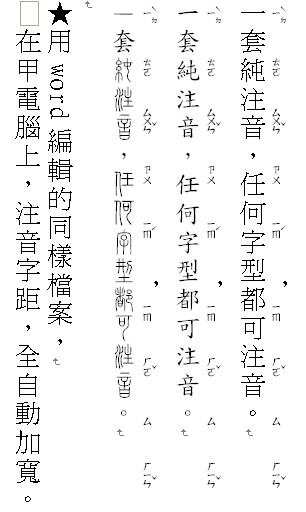 一套純注音，任何字型都可注音。
一套純注音，任何字型都可注音。
一套純注音，任何字型都可注音。
★用 word 編輯的同樣檔案，
□在甲電腦上，注音字距，全自動加寬。